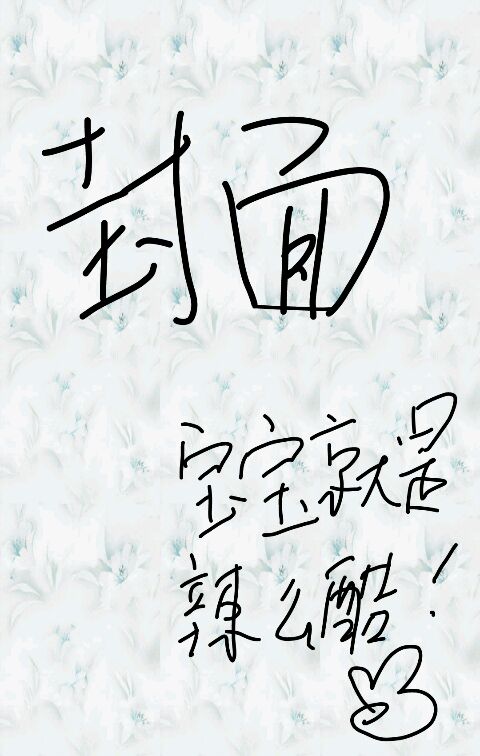 封面
宝宝就是
辣么酷！